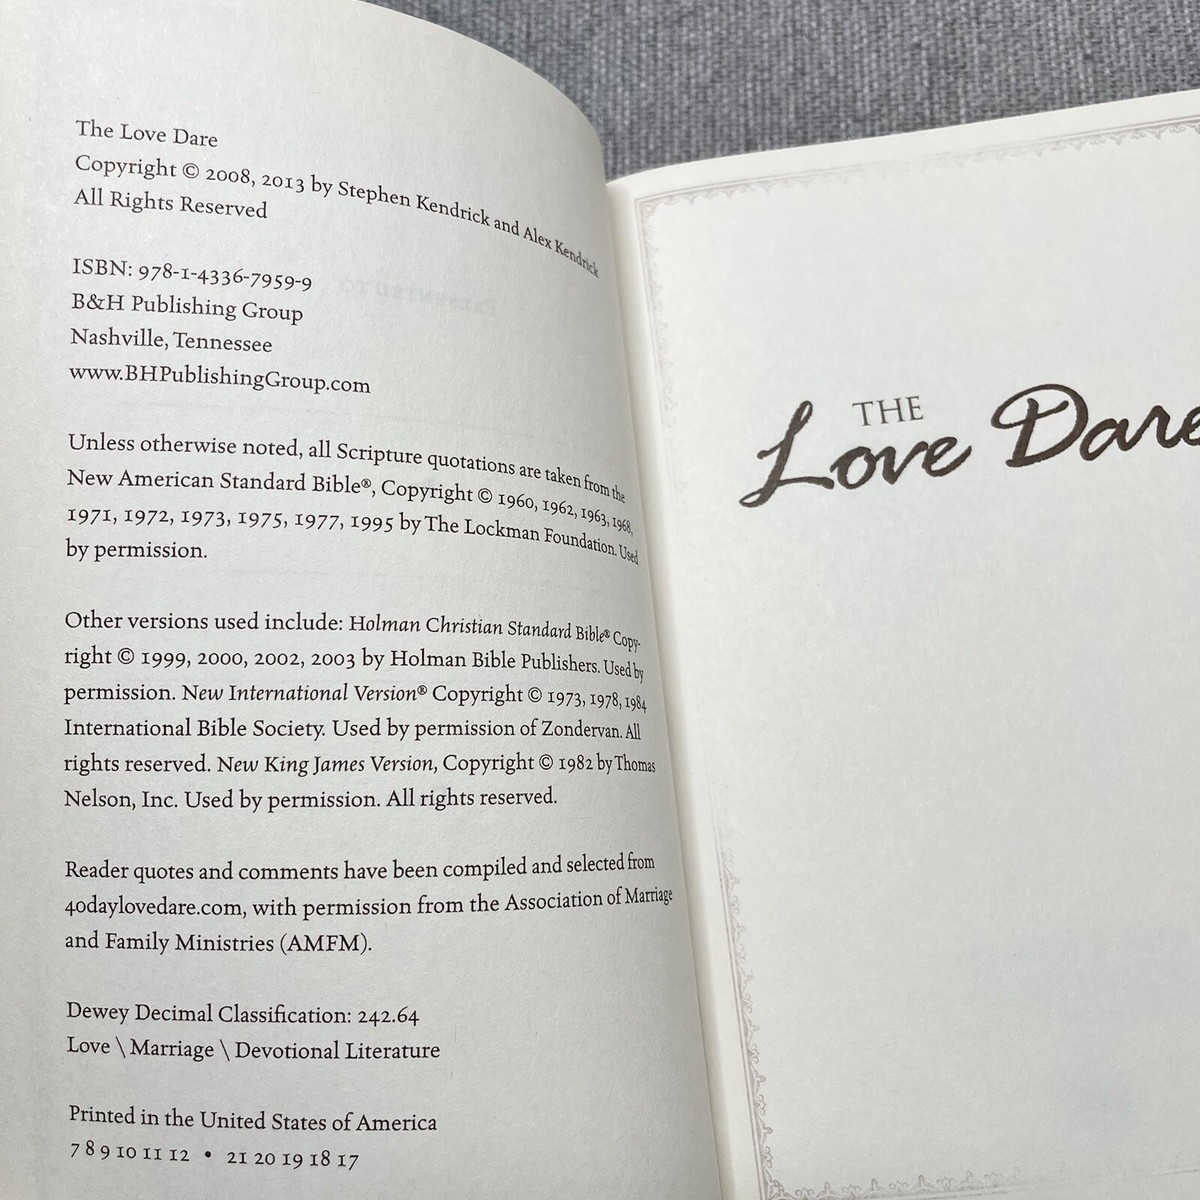 The Love Dare
Copyright © 2008, 2013 by Stephen Kendrick and Alex Kendrick
All Rights Reserved
ISBN: 978-1-4336-7959-9
B&H Publishing Group
Nashville, Tennessee
www.BHPublishingGroup.com
Unless otherwise noted, all Scripture quotations are taken from the
New American Standard Bible®, Copyright © 1960, 1962, 1963, 1968,
1971, 1972, 1973, 1975, 1977, 1995 by The Lockman Foundation. Used
by permission.
Other versions used include: Holman Christian Standard Bible® Copy-
right © 1999, 2000, 2002, 2003 by Holman Bible Publishers. Used by
permission. New International Version® Copyright © 1973, 1978, 1984
International Bible Society. Used by permission of Zondervan. All
rights reserved. New King James Version, Copyright © 1982 by Thomas
Nelson, Inc. Used by permission. All rights reserved.
Reader quotes and comments have been compiled and selected from
40daylovedare.com, with permission from the Association of Marriage
and Family Ministries (AMFM).
Dewey Decimal Classification: 242.64
Love \ Marriage \ Devotional Literature
Printed in the United States of America
7 8 9 10 11 12 • 21 20 19 18 17
THE
Love Dare